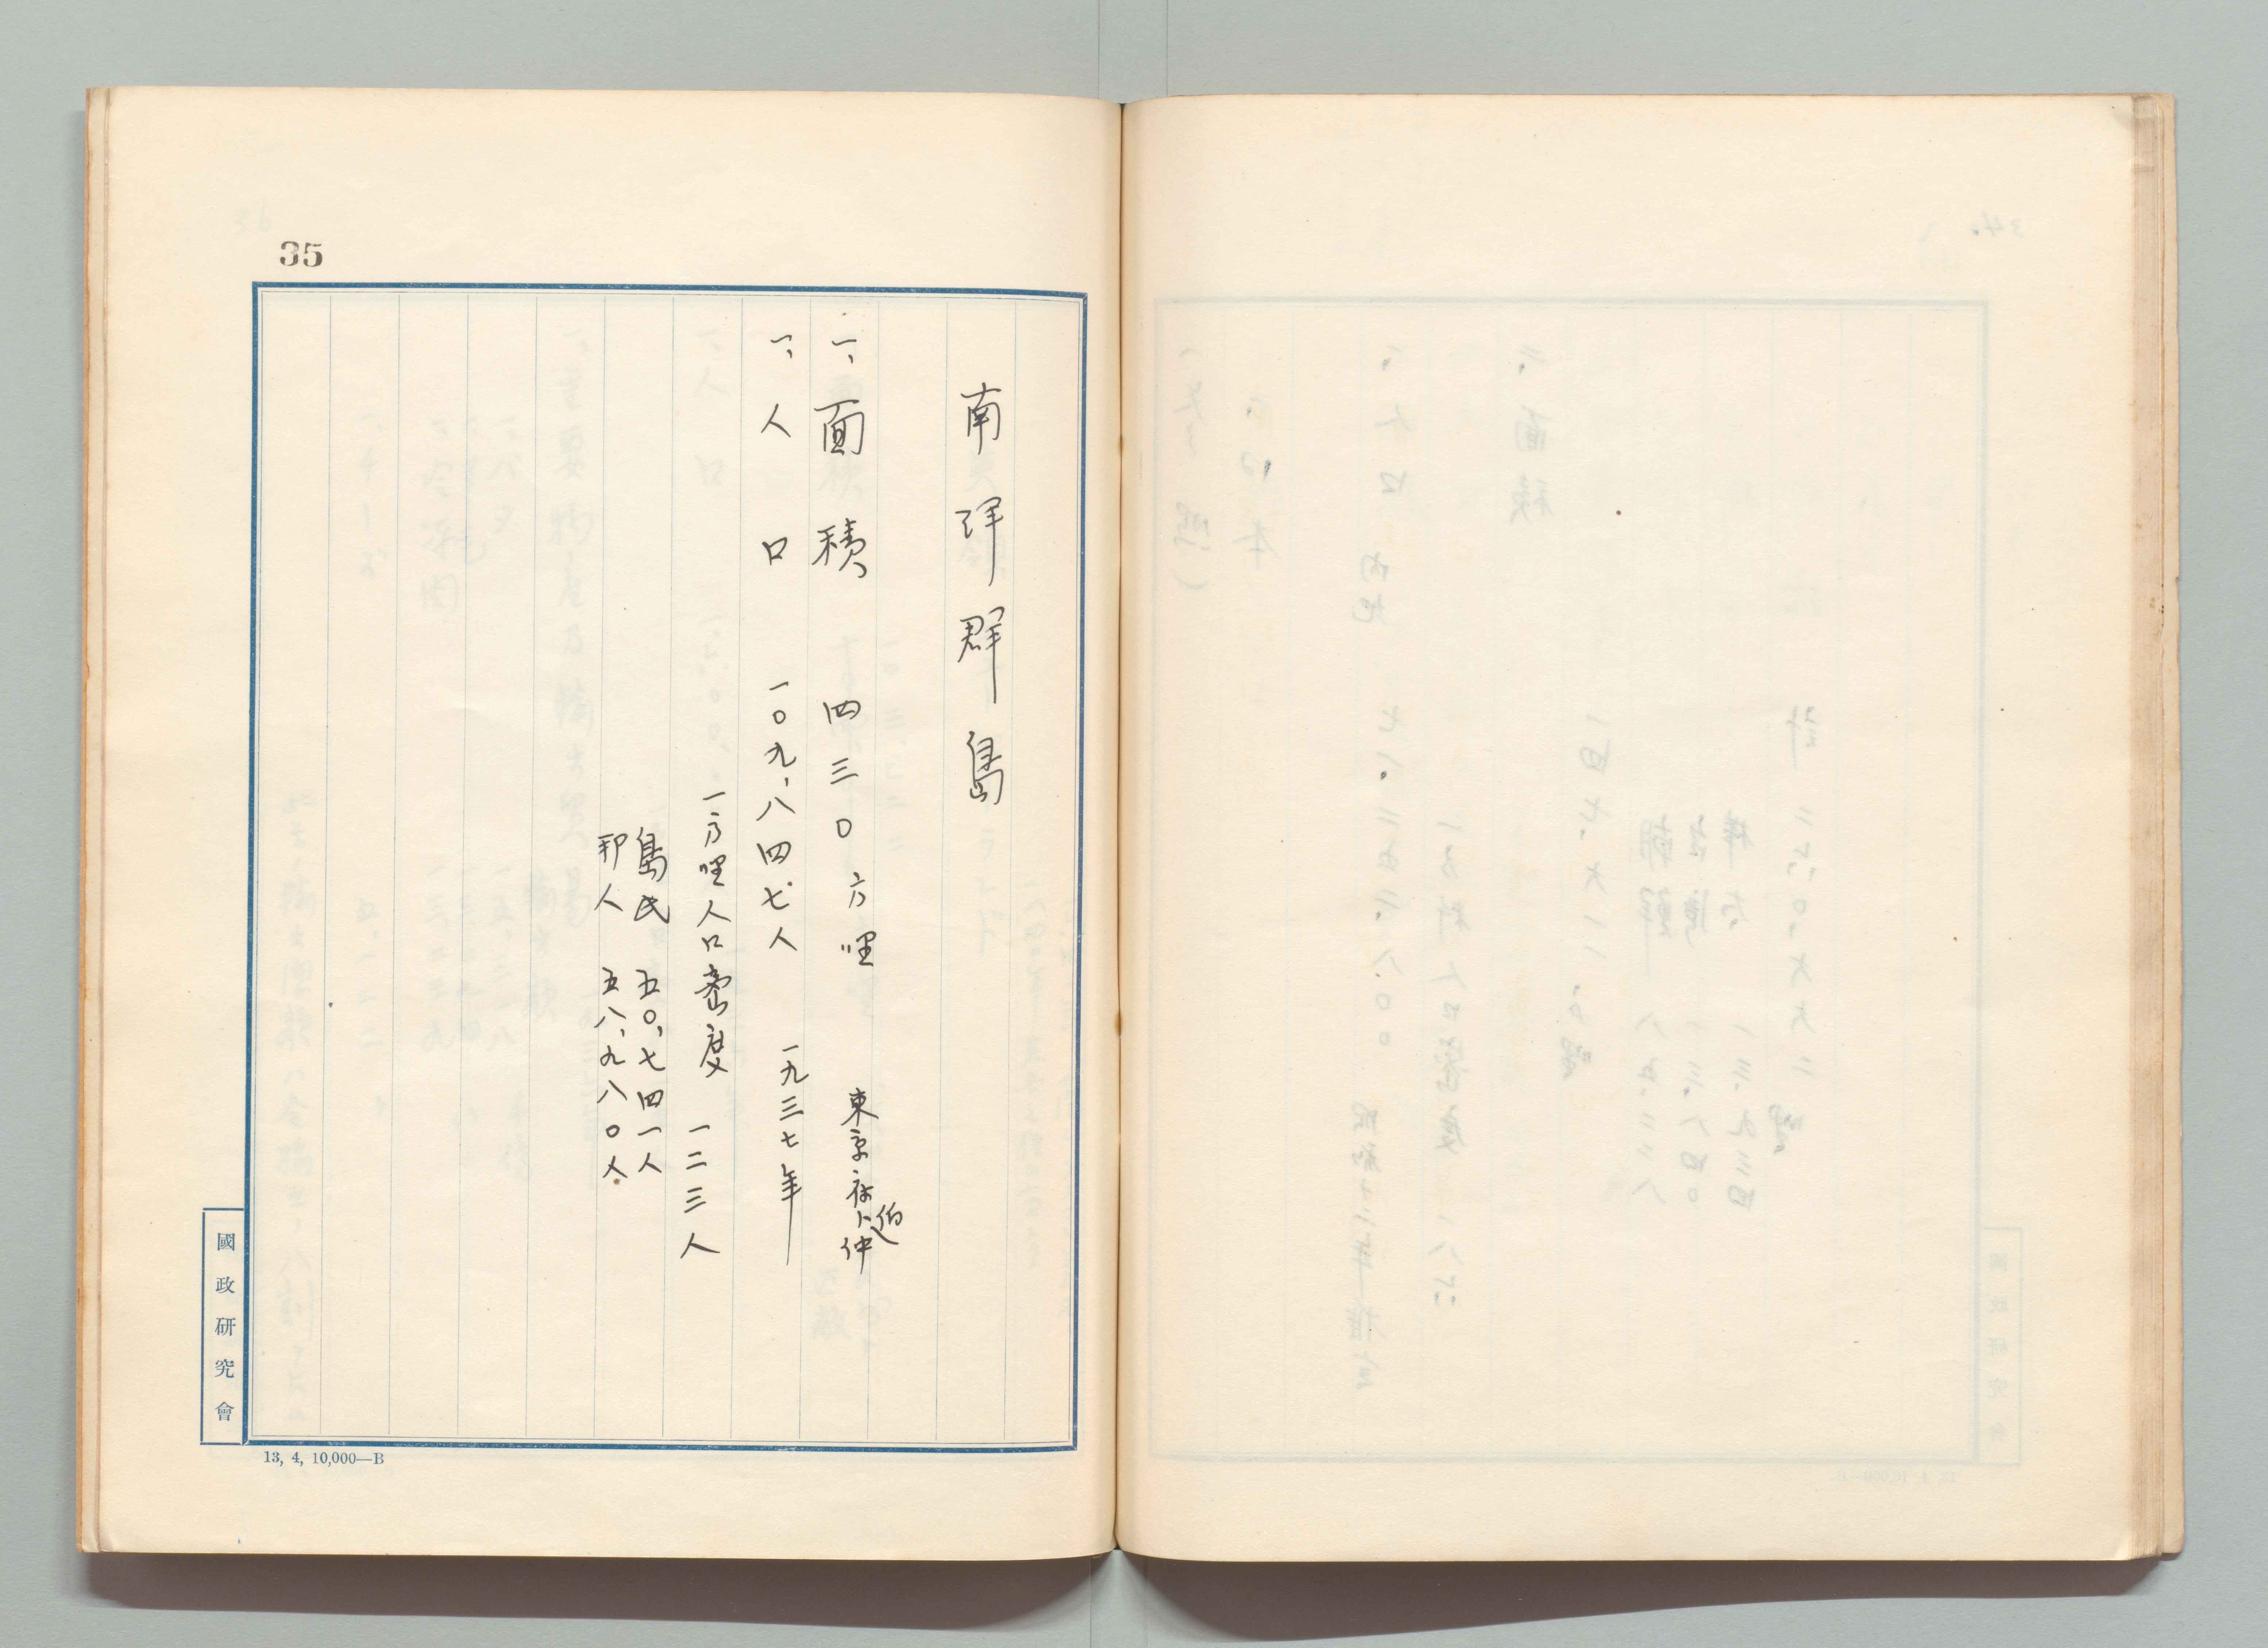 35
南洋群島
一、面積 四三〇方哩 東京府ト伯仲
一、人口 一〇九、八四七人 一九三七年
一方哩人口密度 一二三人
島民 五〇、七四一人
邦人 五八、九八〇人
國政研究會
13, 4, 10,000—B